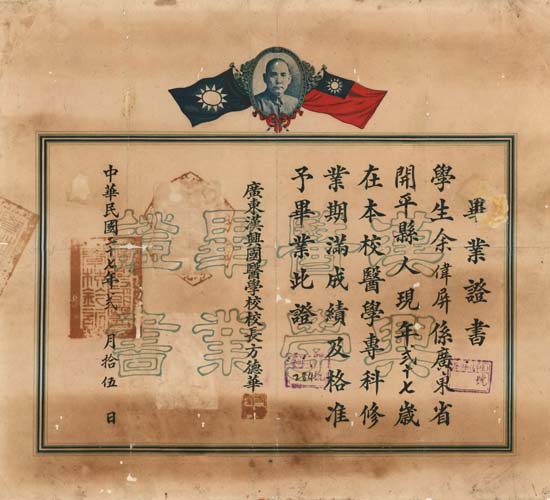 畢業證書
學生余偉屏係廣東省
開平縣人現年弍十七歲
在本校醫學專科修
業期滿成績及格准
予畢業此證
廣東漢興國醫學校校長方德華
中華民國二十七年弍月拾伍日
漢興
醫學
畢業
證書